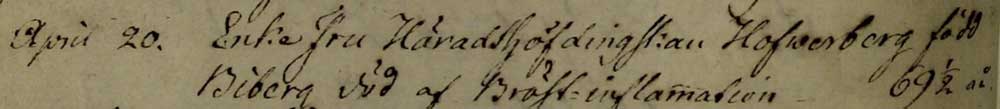 April 20. Enke Fru Häradshöfdingskan Hofwerberg född
Biberg död af Bröst-inflammation 69 1/2 år.